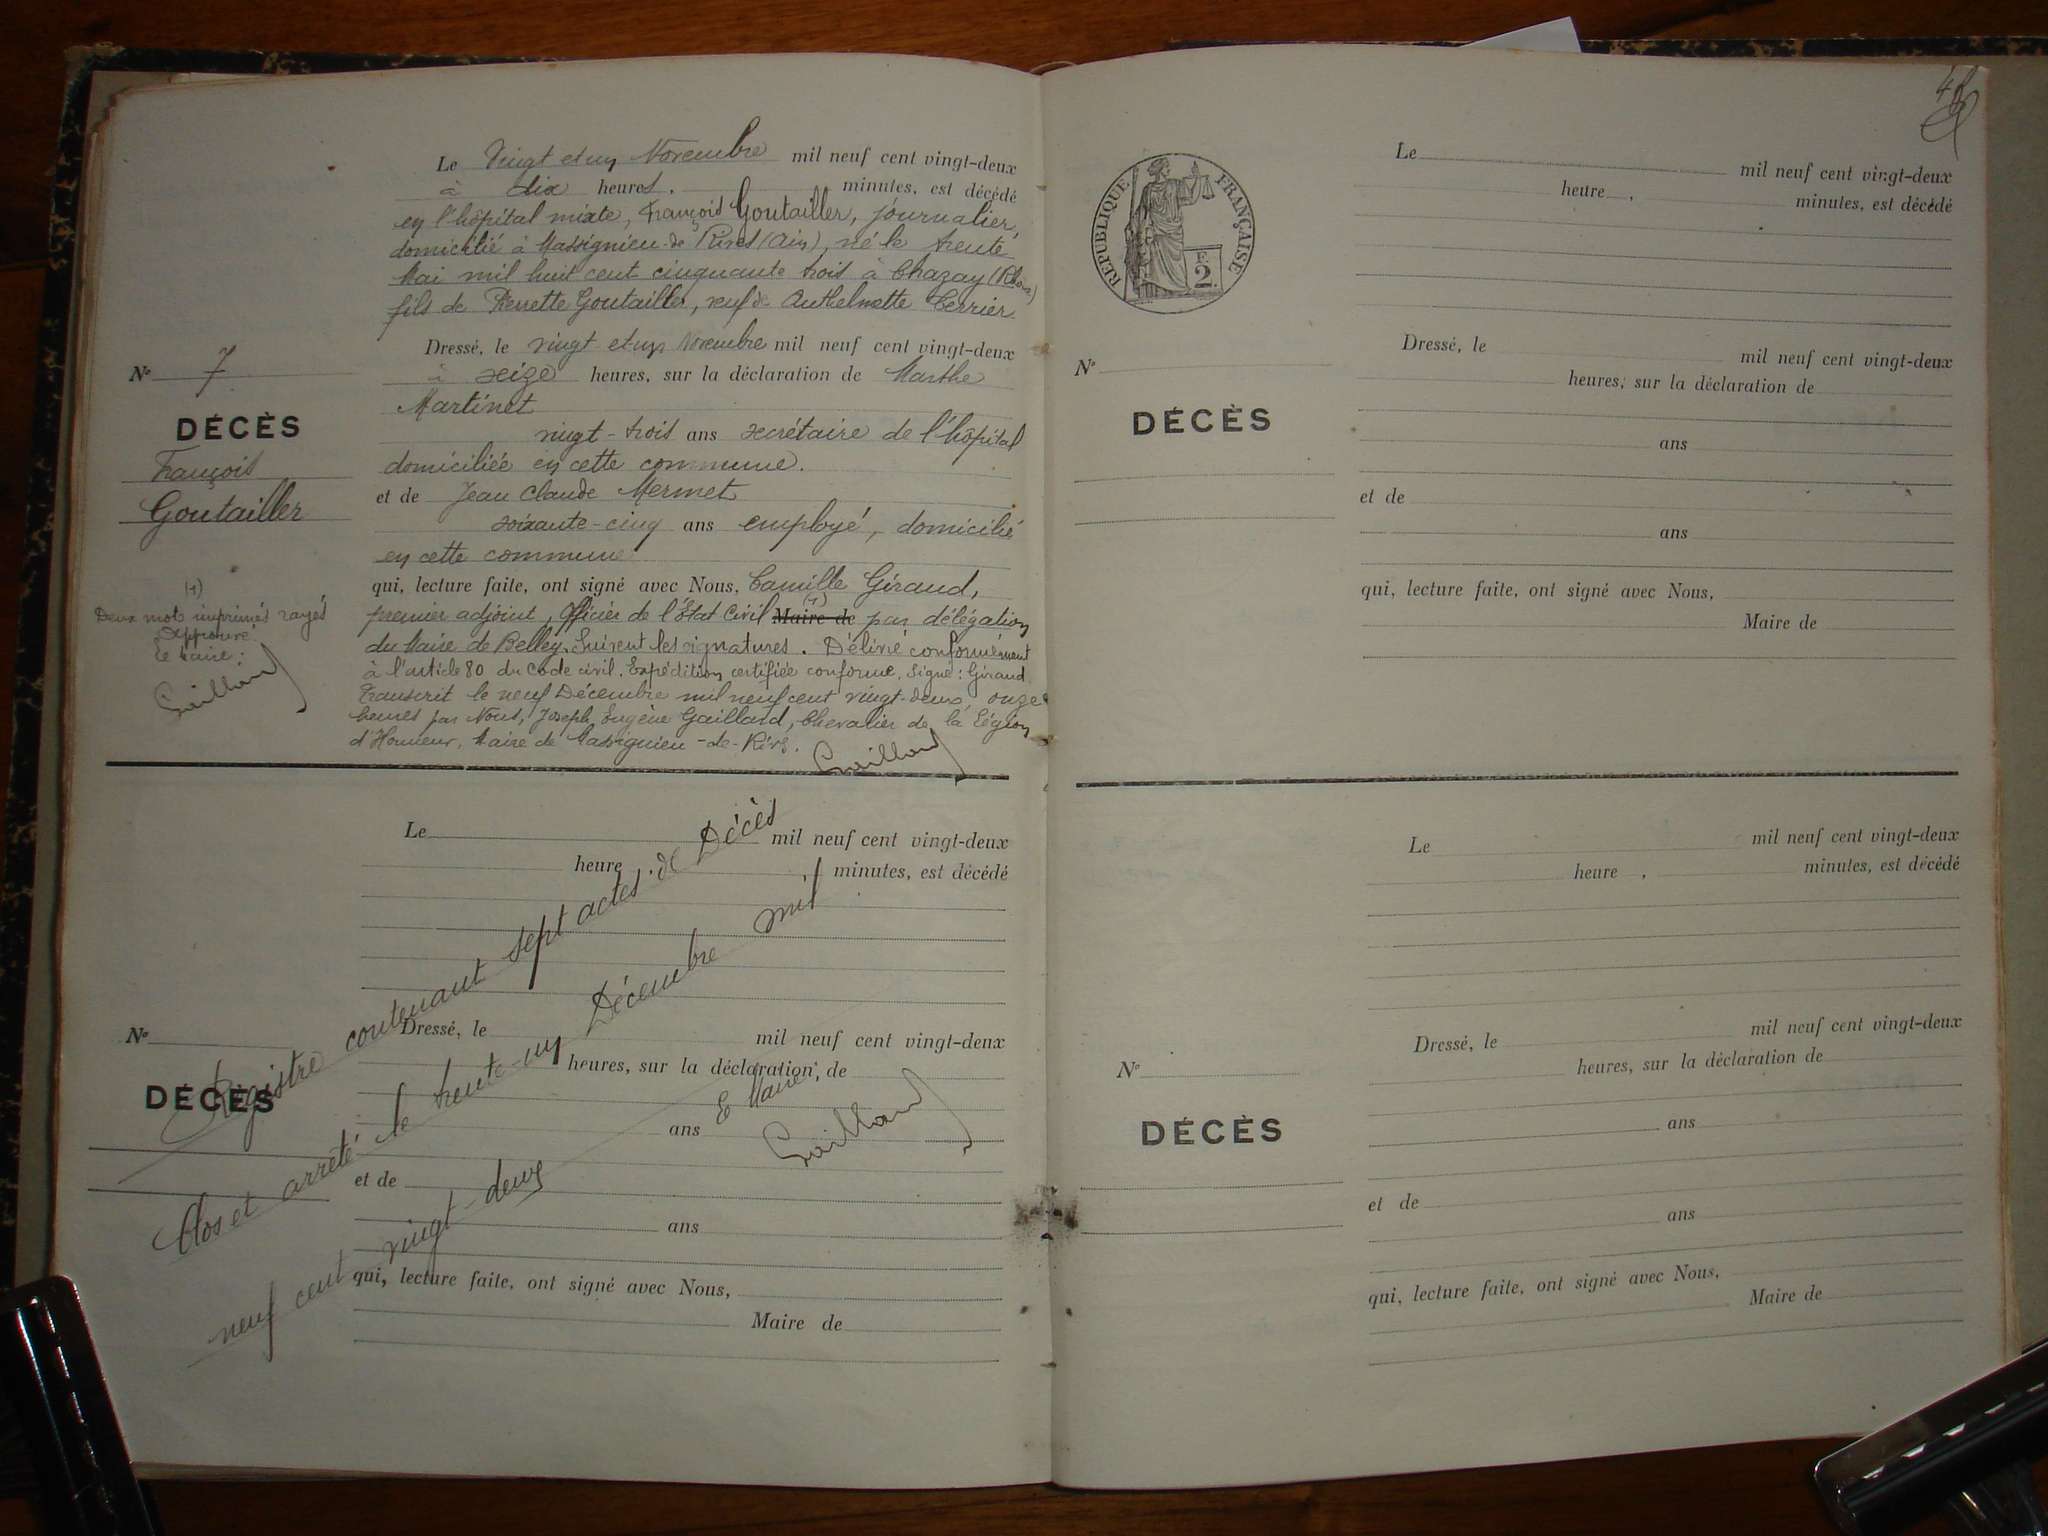 Le Vingt et un Novembre mil neuf cent vingt-deux
à dix heures, minutes, est décédé
en l'hôpital mixte, François Goutailler, journalier,
domicilié à Massignieu-de Rives (Ain), né le trente
Mai mil huit cent cinquante trois à Chazay (Rhône)
fils de Pierrette Goutailler, veuf de Anthelmette Terrier
Dressé, le vingt et un Novembre mil neuf cent vingt-deux
à seize heures, sur la déclaration de Marthe
Martinet
vingt-trois ans secrétaire de l'hôpital
domiciliée en cette commune.
et de Jean Claude Mermet
soixante-cinq ans employé, domicilié
en cette commune
qui, lecture faite, ont signé avec Nous, Camille Giraud,
premier adjoint, Officier de l'État Civil (1) Maire de par délégation
du Maire de Belley. Suivent les signatures. Délivré conformément
à l'article 80 du Code civil. Expédition certifiée conforme. Signé: Giraud.
Transcrit le neuf Décembre mil neuf cent vingt-deux, onze
heures par Nous, Joseph Eugène Gaillard, Chevalier de la Légion
d'Honneur, Maire de Massignieu-de-Rives.
Gaillard
N° 7
DÉCÈS
François
Goutailler
(1)
Deux mots imprimés rayés
Approuvé.
Le Maire:
Gaillard
Le mil neuf cent vingt-deux
heure , minutes, est décédé
Dressé, le mil neuf cent vingt-deux
heures, sur la déclaration de
ans
et de
ans
qui, lecture faite, ont signé avec Nous,
Maire de
N°
DÉCÈS
Registre contenant sept actes de Décès
Clos et arrêté le trente-un Décembre mil
neuf cent vingt-deux
Le Maire,
Gaillard
RÉPUBLIQUE FRANÇAISE
F.
2
Le mil neuf cent vingt-deux
heure , minutes, est décédé
Dressé, le mil neuf cent vingt-deux
heures, sur la déclaration de
ans
et de
ans
qui, lecture faite, ont signé avec Nous,
Maire de
N°
DÉCÈS
Le mil neuf cent vingt-deux
heure , minutes, est décédé
Dressé, le mil neuf cent vingt-deux
heures, sur la déclaration de
ans
et de
ans
qui, lecture faite, ont signé avec Nous,
Maire de
N°
DÉCÈS